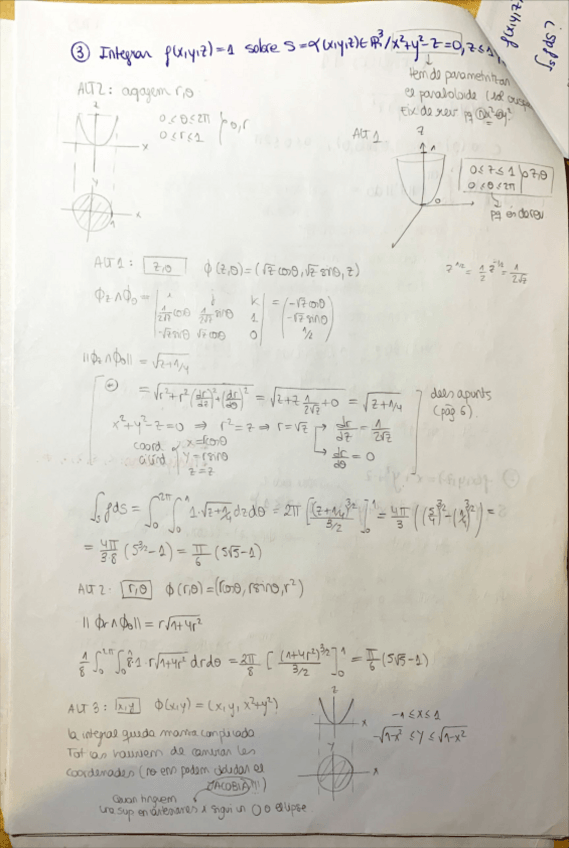 ③ Integrar f(x,y,z)=1 sobre S = {(x,y,z)∈ℝ³/x²+y²-z=0, z≤1
Hem de parametritzar
el paraboloide
ALT 2: agafem r,θ
0≤θ≤2π
0≤r≤1 } θ,r
ALT 1
0≤z≤1
0≤θ≤2π } z,θ
z
x
y
x
ALT 1: z,θ φ(z,θ)=(√z cosθ, √z sinθ, z)
z^1/2 = 1/2 z^-1/2 = 1/2√z
φz∧φθ = | i j k ; 1/2√z cosθ 1/2√z sinθ 1 ; -√z sinθ √z cosθ 0 | = (-√z cosθ ; -√z sinθ ; 1/2)
||φz∧φθ|| = √z+1/4
= √r²+r²(dr/dz)²+(dr/dθ)² = √z+z 1/2√z+0 = √z+1/4
dels apunts
(pàg 6).
x²+y²-z=0 ⇒ r²=z ⇒ r=√z → dr/dz = 1/2√z
→ dr/dθ = 0
coord
cilínd { x=rcosθ
y=rsinθ
z=z
∫s fds = ∫₀^2π ∫₀^1 1·√z+1/4 dzdθ = 2π [(z+1/4)^3/2 / 3/2]₀^1 = 4π/3 ((5/4)^3/2-(1/4)^3/2) =
= 4π/3·8 (5^3/2-1) = π/6 (5√5-1)
ALT 2: r,θ φ(r,θ)=(rcosθ, rsinθ, r²)
||φr∧φθ|| = r√1+4r²
1/8 ∫₀^2π ∫₀^1 8·1·r√1+4r² drdθ = 2π/8 [(1+4r²)^3/2 / 3/2]₀^1 = π/6 (5√5-1)
ALT 3: x,y φ(x,y) = (x, y, x²+y²)
z
x
y
x
-1≤x≤1
-√1-x² ≤ y ≤ √1-x²
la integral queda massa complicada
Tot i això hauríem de canviar les
coordenades (no ens podem oblidar el
JACOBIÀ!!!)
Quan tinguem
una sup en cartesianes i sigui un O o el·lipse